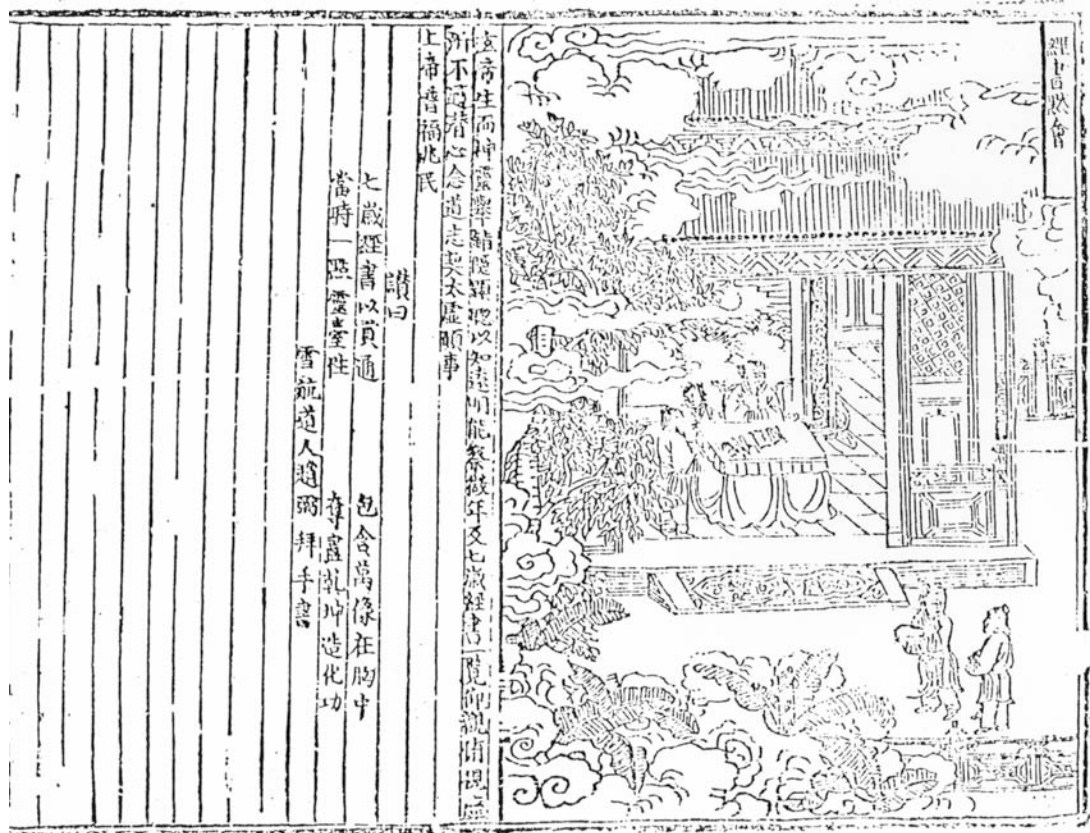 經書默會
玄帝生而神靈舉措隱顯聰以知遠明能察微年及七歲經書一覽仰觀俯視靡
所不通潛心念道志契太虛願事
上帝普福兆民
讚曰
七歲經書以貫通 包含萬像在胸中
當時一點靈臺性 奪盡乾坤造化功
雪航道人趙弼拜手書